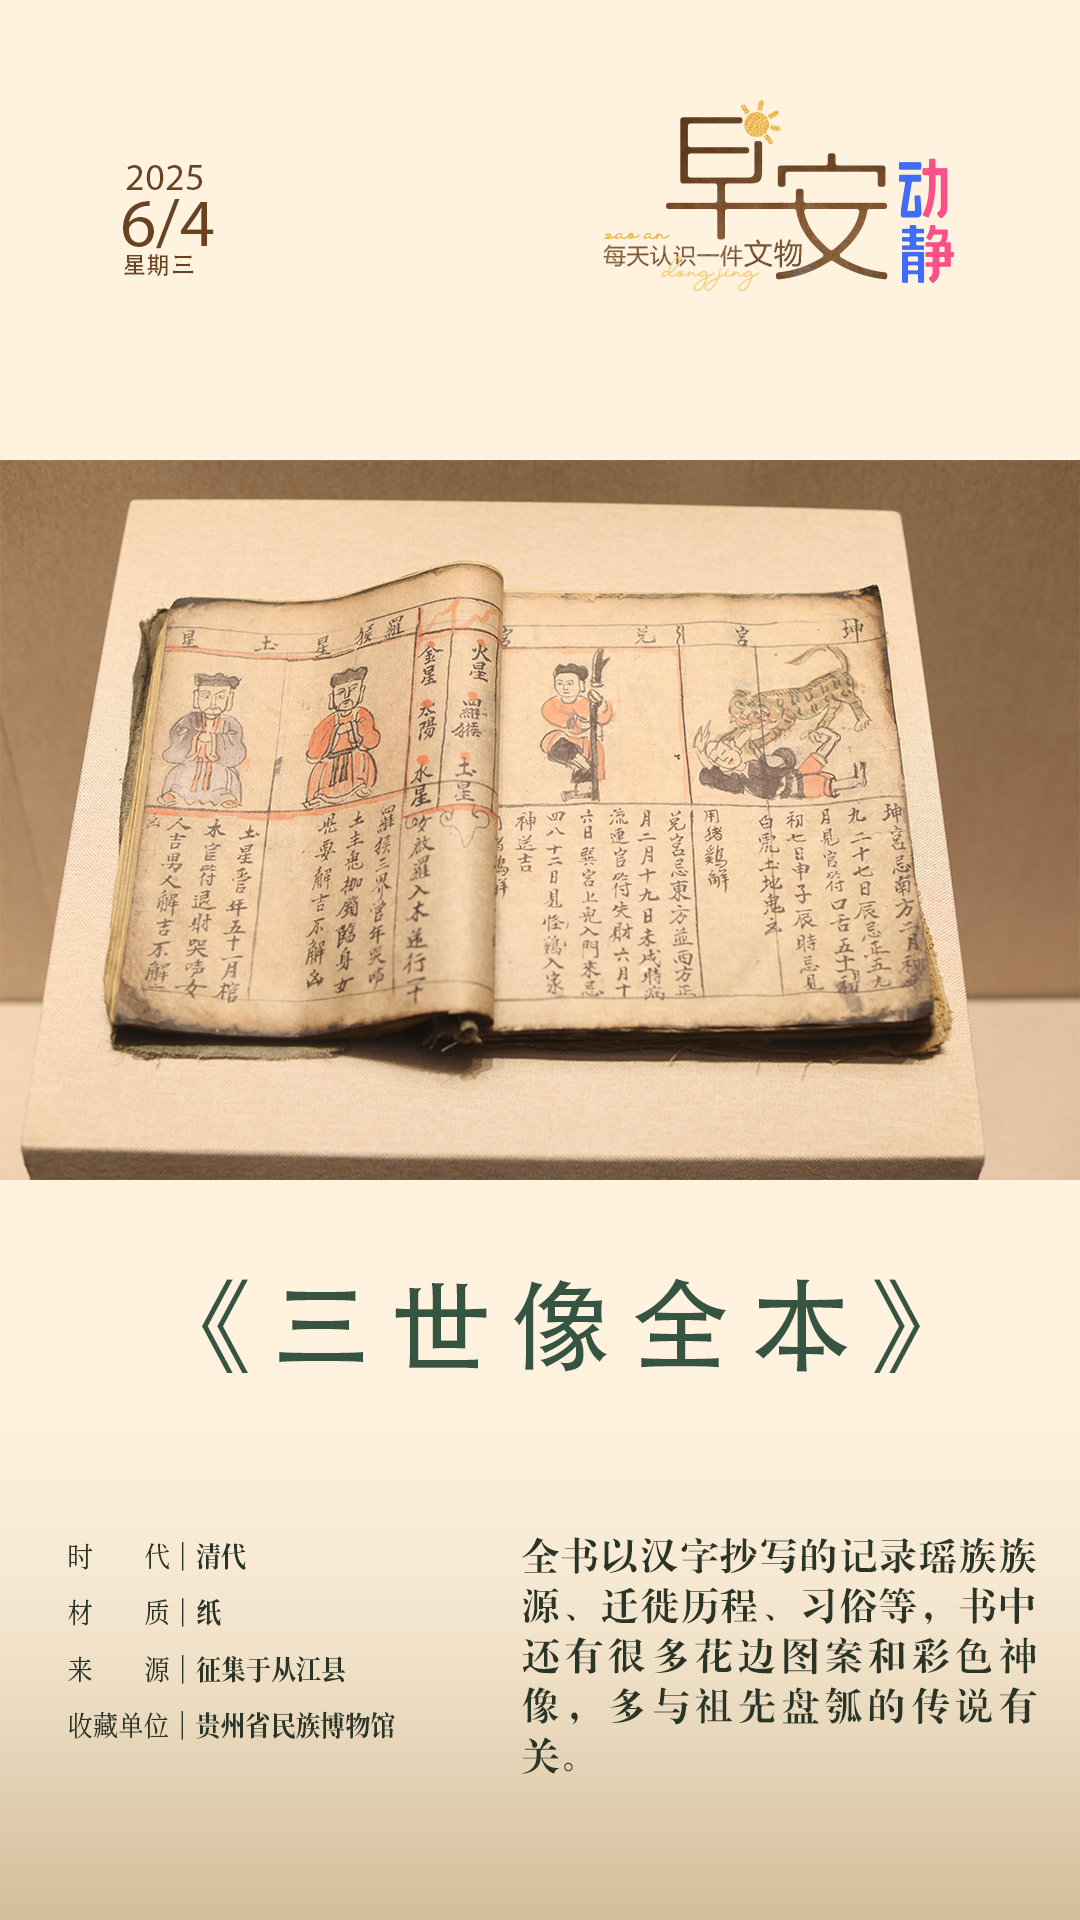 2025
6/4
星期三
早安
动静
zao an
每天认识一件文物
dongjing
坤 宮
兌 宮
羅 猴 星
土 星
坤宮忌南方二月初
九二十七日辰忌正五九
月見官符口舌五十初
初七日申子辰時忌見
白虎土地鬼凶
用猪雞解
兌宮忌東方並西方正
月二月十九日未戌時病
流連官符失財六月十
六日巽宮上鬼入門來忌
四八十二日見怪鶏入家
神送吉
火星 羅猴 土星
金星 太陽 水星
羅猴三界官年哭啼
土主鬼枷鎖臨身女
土星書年五十一月棺
水官符退財哭啼女
人吉男人解吉不解
《三世像全本》
时 代|清代
材 质|纸
来 源|征集于从江县
收藏单位|贵州省民族博物馆
全书以汉字抄写的记录瑶族族
源、迁徙历程、习俗等，书中
还有很多花边图案和彩色神
像，多与祖先盘瓠的传说有
关。